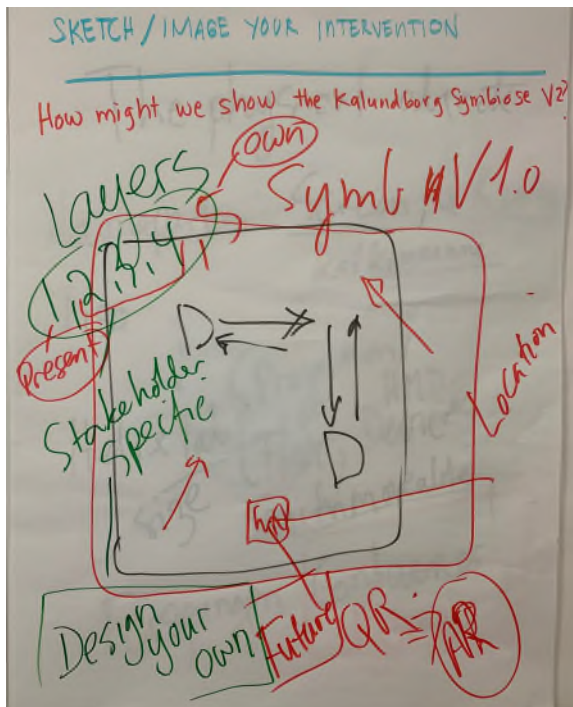 SKETCH/IMAGE YOUR INTERVENTION
How might we show the Kalundborg Symbiose V2?
own
Layers
Symb V1.0
1,2,3,4
Present
D
Stakeholder
specific
Location
D
Design
your
own
Future
QR
AR